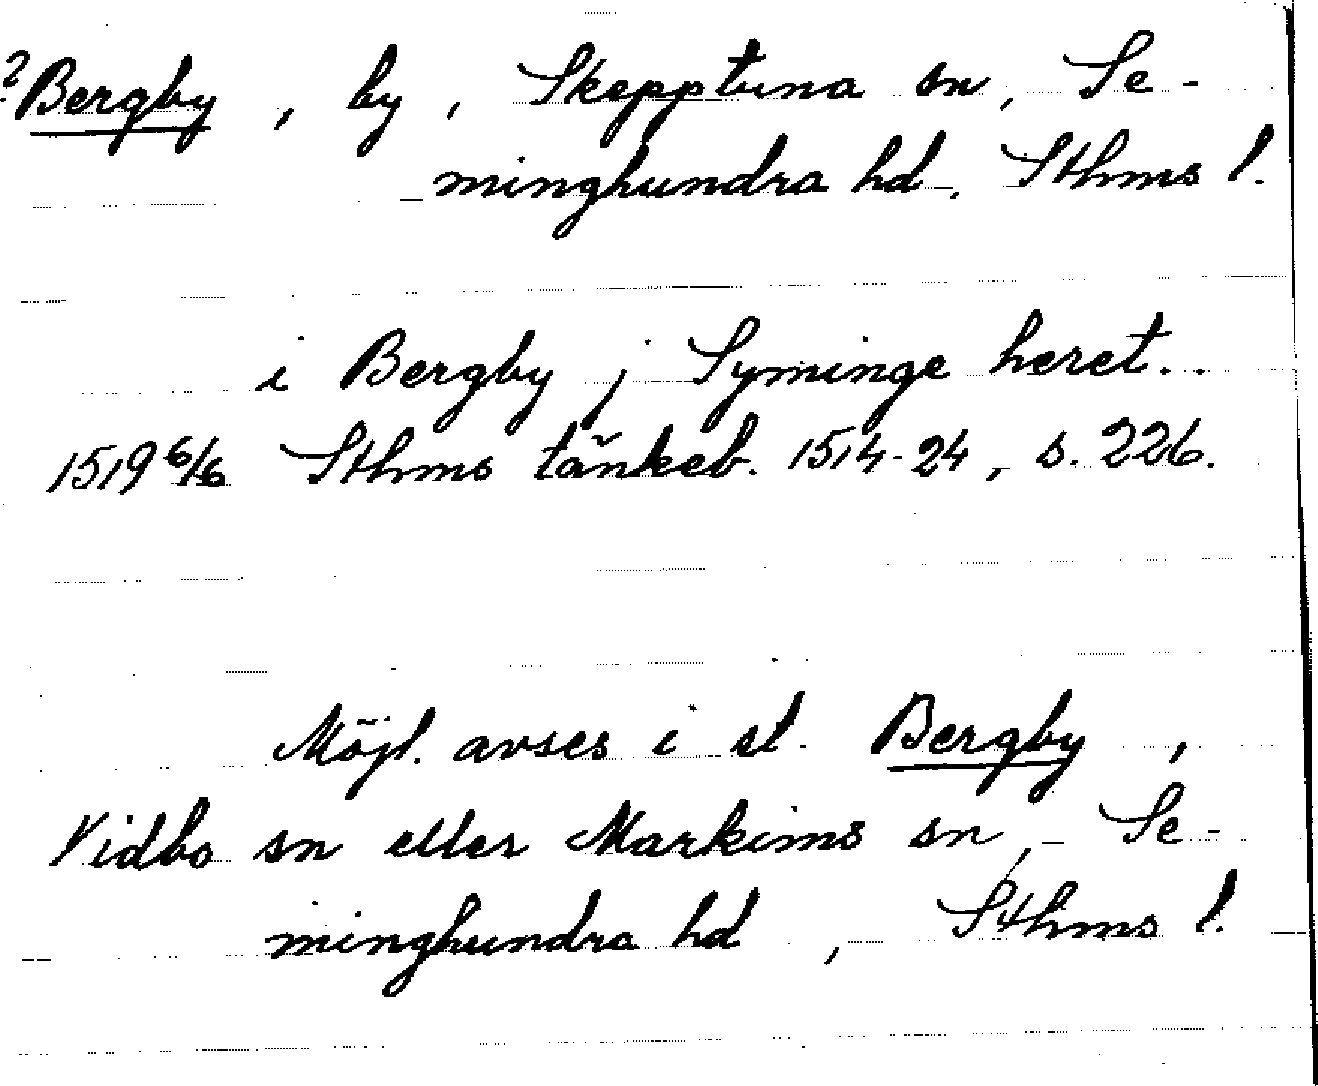 ? Bergby, by, Skepptuna sn, Se-
minghundra hd, Sthms l.
i Bergby j Syminge heret..
1519 6/6 Sthms tänkeb. 1514-24, s. 226.
Möjl. avses i st. Bergby,
Vidbo sn eller Markims sn, Se-
minghundra hd, Sthms l.